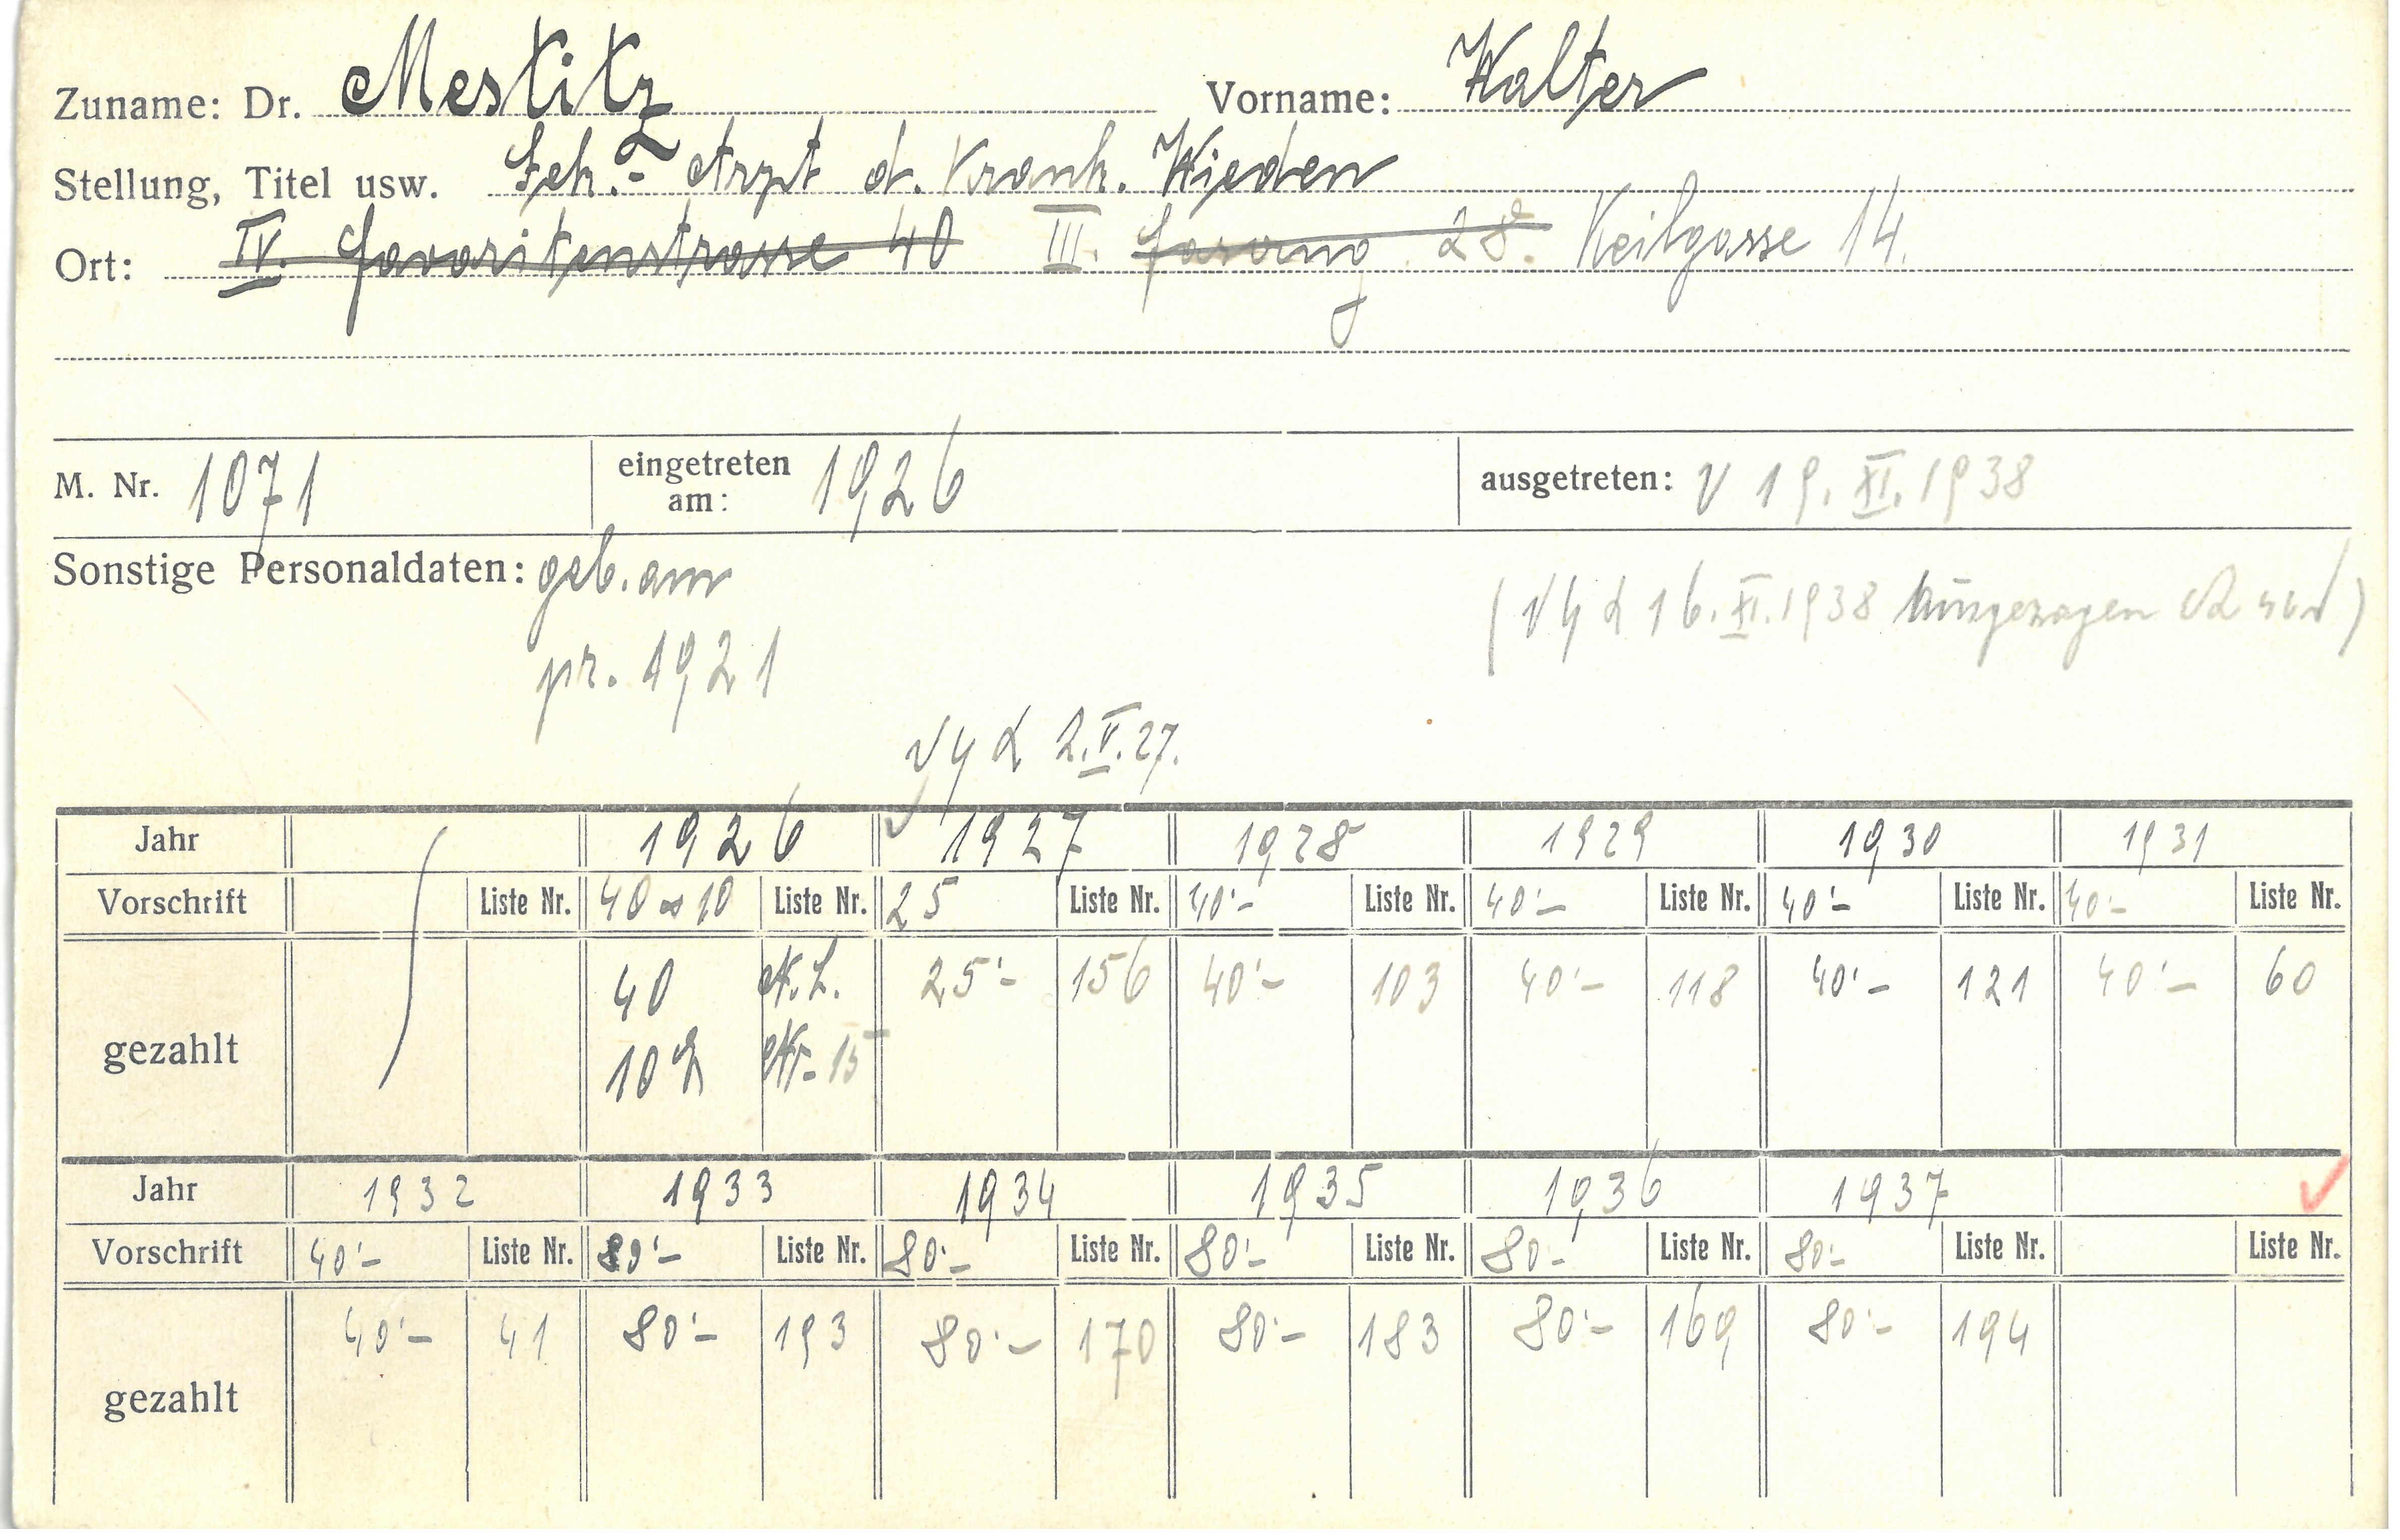 Zuname: Dr. Mestitz Vorname: Walter
Stellung, Titel usw. Sek.-Arzt d. Krank. Wieden
Ort: IV. Favoritenstrasse 40 III. Fasang. 28. Keilgasse 14.
M. Nr. 1071 eingetreten am: 1926 ausgetreten: V 19. XI. 1938
Sonstige Personaldaten: geb. am
(16. XI. 1938
pr. 1921
2. V. 27.
Jahr 1926 1927 1928 1929 1930 1931
Vorschrift Liste Nr. 40 10 Liste Nr. 25 Liste Nr. 40'- Liste Nr. 40'- Liste Nr. 40'- Liste Nr. 40'- Liste Nr.
gezahlt 40 N. L. 25'- 156 40'- 103 40'- 118 40'- 121 40'- 60
10 Nr. 15
Jahr 1932 1933 1934 1935 1936 1937
Vorschrift 40'- Liste Nr. 80'- Liste Nr. 80'- Liste Nr. 80'- Liste Nr. 80'- Liste Nr. 80'- Liste Nr. Liste Nr.
gezahlt 40'- 41 80'- 193 80'- 170 80'- 183 80'- 169 80'- 194